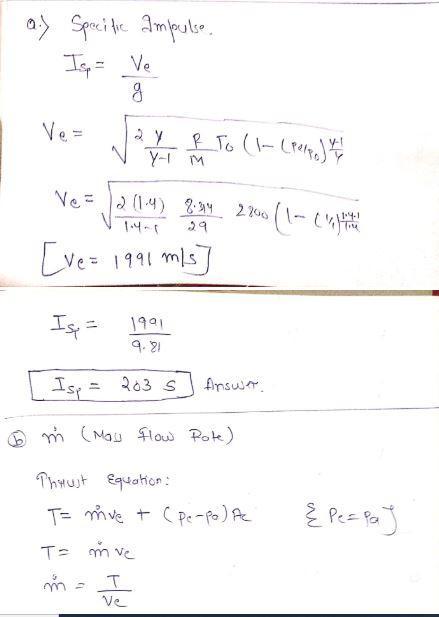 a.) Specific Impulse.
Isp = Ve / g
Ve = √(2 γ/(γ-1) R/M To (1 - (Pe/Po)^(γ-1)/γ
Ve = √(2 (1.4)/(1.4-1) 8.314/29 2800 (1 -
[Ve = 1991 m/s]
Isp = 1991 / 9.81
Isp = 203 s Answer.
b ṁ (Mass flow Rate)
Thrust Equation:
T = ṁve + (Pe-Pa) Ae { Pe = Pa }
T = ṁ ve
ṁ = T / Ve